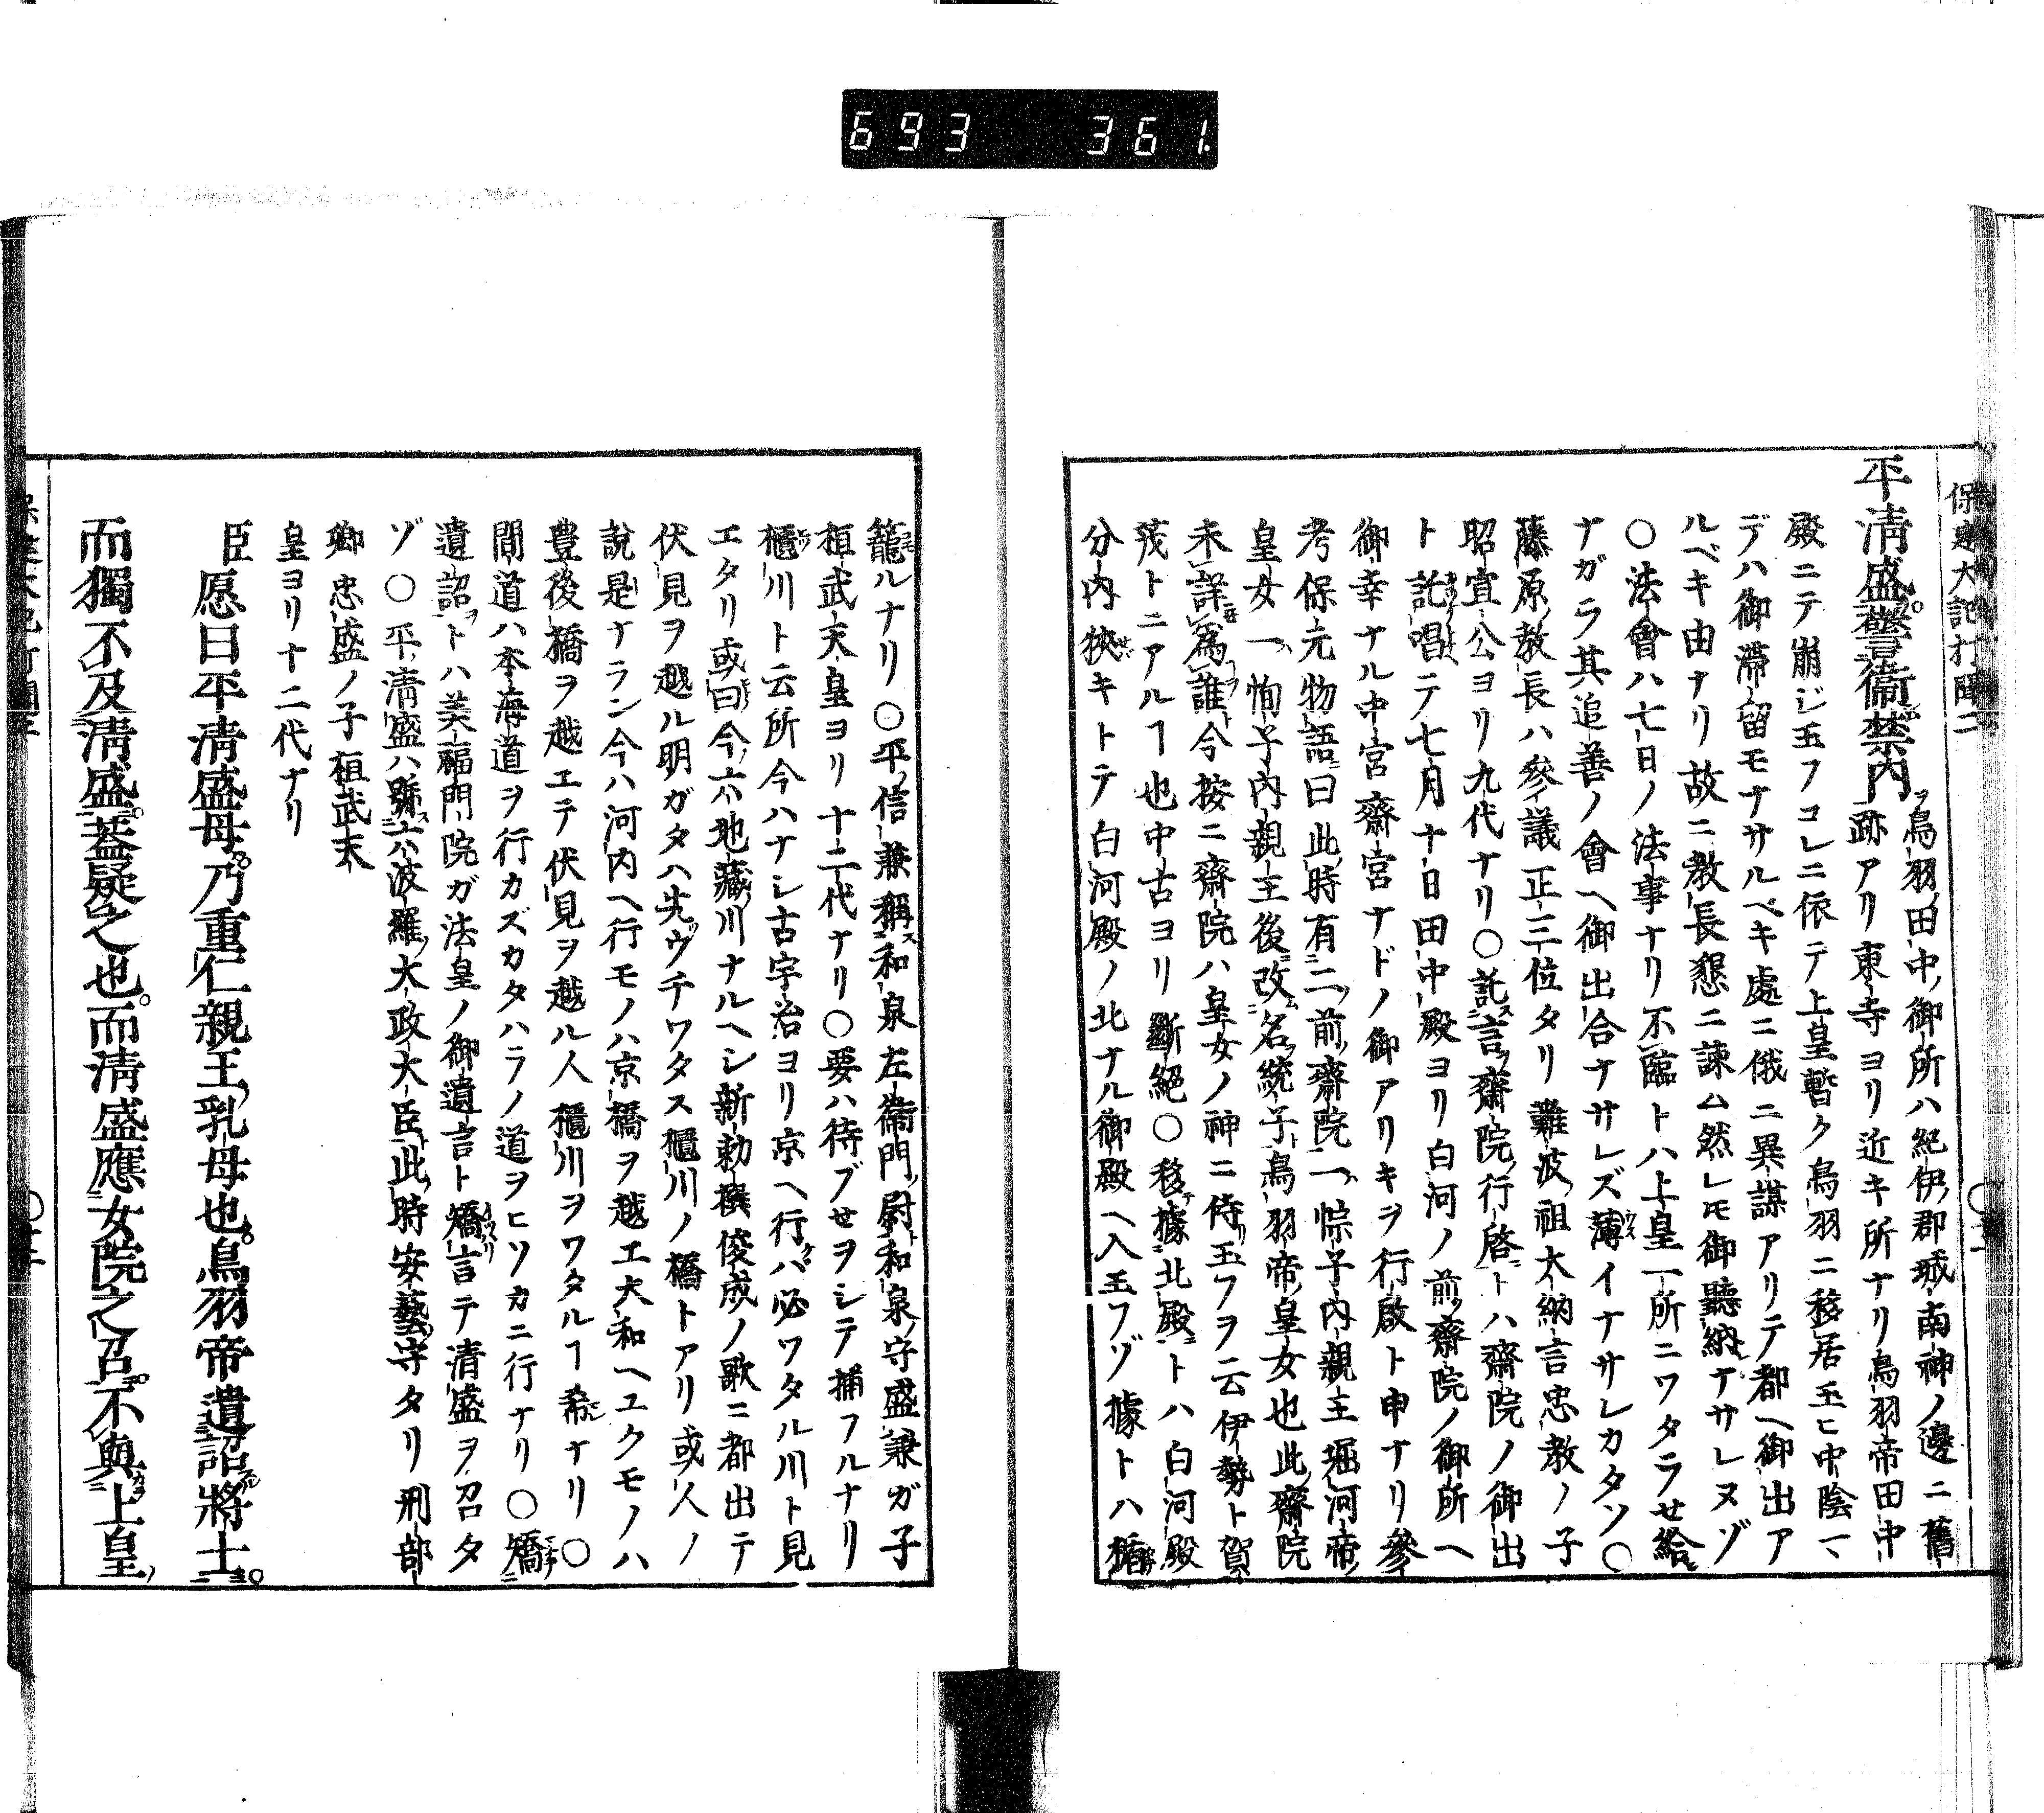 693 361.
保建大記打聞二
平清盛警衞禁内ヲ鳥羽田中御所ハ紀伊郡城南神ノ邊ニ舊
跡アリ東寺ヨリ近キ所ナリ鳥羽帝田中
殿ニテ崩ジ玉フコレニ依テ上皇暫ク鳥羽ニ移居玉ヒ中陰一
デハ御滯留モナサルベキ處ニ俄ニ異謀アリテ都ヘ御出ア
ルベキ由ナリ故ニ教長懇ニ諫ム然レモ御聽納ナサレヌゾ
〇法會ハ七日ノ法事ナリ不臨トハ上皇一所ニワタラせ給
ナガラ其追善ノ會ヘ御出合ナサレズ薄イナサレカタソ〇
藤原教長ハ參議正三位タリ難波祖大納言忠教ノ子
昭宣公ヨリ九代ナリ〇託言齋院行啓トハ齋院ノ御出
ト託唱テ七月十日田中殿ヨリ白河ノ前齋院ノ御所ヘ
御幸ナル中宮齋宮ナドノ御アリキヲ行啟ト申ナリ參
考保元物語曰此時有二前齋院一悰子内親王堀河帝
皇女一恂子内親王後改名統子鳥羽帝皇女也此齋院
未詳為誰今按ニ齋院ハ皇女ノ神ニ侍玉フヲ云伊勢ト賀
茂トニアルヿ也中古ヨリ斷絕〇移據北殿トハ白河殿
分内狹キトテ白河殿ノ北ナル御殿ヘ入玉フゾ據トハ楯
籠ルナリ〇平信兼稱和泉左衞門尉和泉守盛兼ガ子
桓武天皇ヨリ十二代ナリ〇要ハ待ブせヲシテ捕フルナリ
櫃川ト云所今ハナシ古宇治ヨリ京ヘ行バ必ワタル川ト見
エタリ或曰今六地藏川ナルヘシ新勅撰俊成ノ歌ニ都出テ
伏見ヲ越ル明ガタハ先ウチワタス櫃川ノ橋トアリ或人ノ
說是ナラン今ハ河内ヘ行モノハ京橋ヲ越エ大和ヘユクモノハ
豊後橋ヲ越エテ伏見ヲ越ル人櫃川ヲワタルヿ希ナリ〇
間道ハ本海道ヲ行カズカタハラノ道ヲヒソカニ行ナリ〇矯
遺詔トハ美福門院ガ法皇ノ御遺言ト矯言テ清盛ヲ召タ
ゾ〇平清盛ハ號六波羅太政大臣此時安藝守タリ刑部
卿忠盛ノ子桓武末
皇ヨリ十二代ナリ
臣愿曰平清盛母乃重仁親王乳母也鳥羽帝遺詔將士
而獨不及清盛蓋疑之也而清盛應女院之召不與上皇